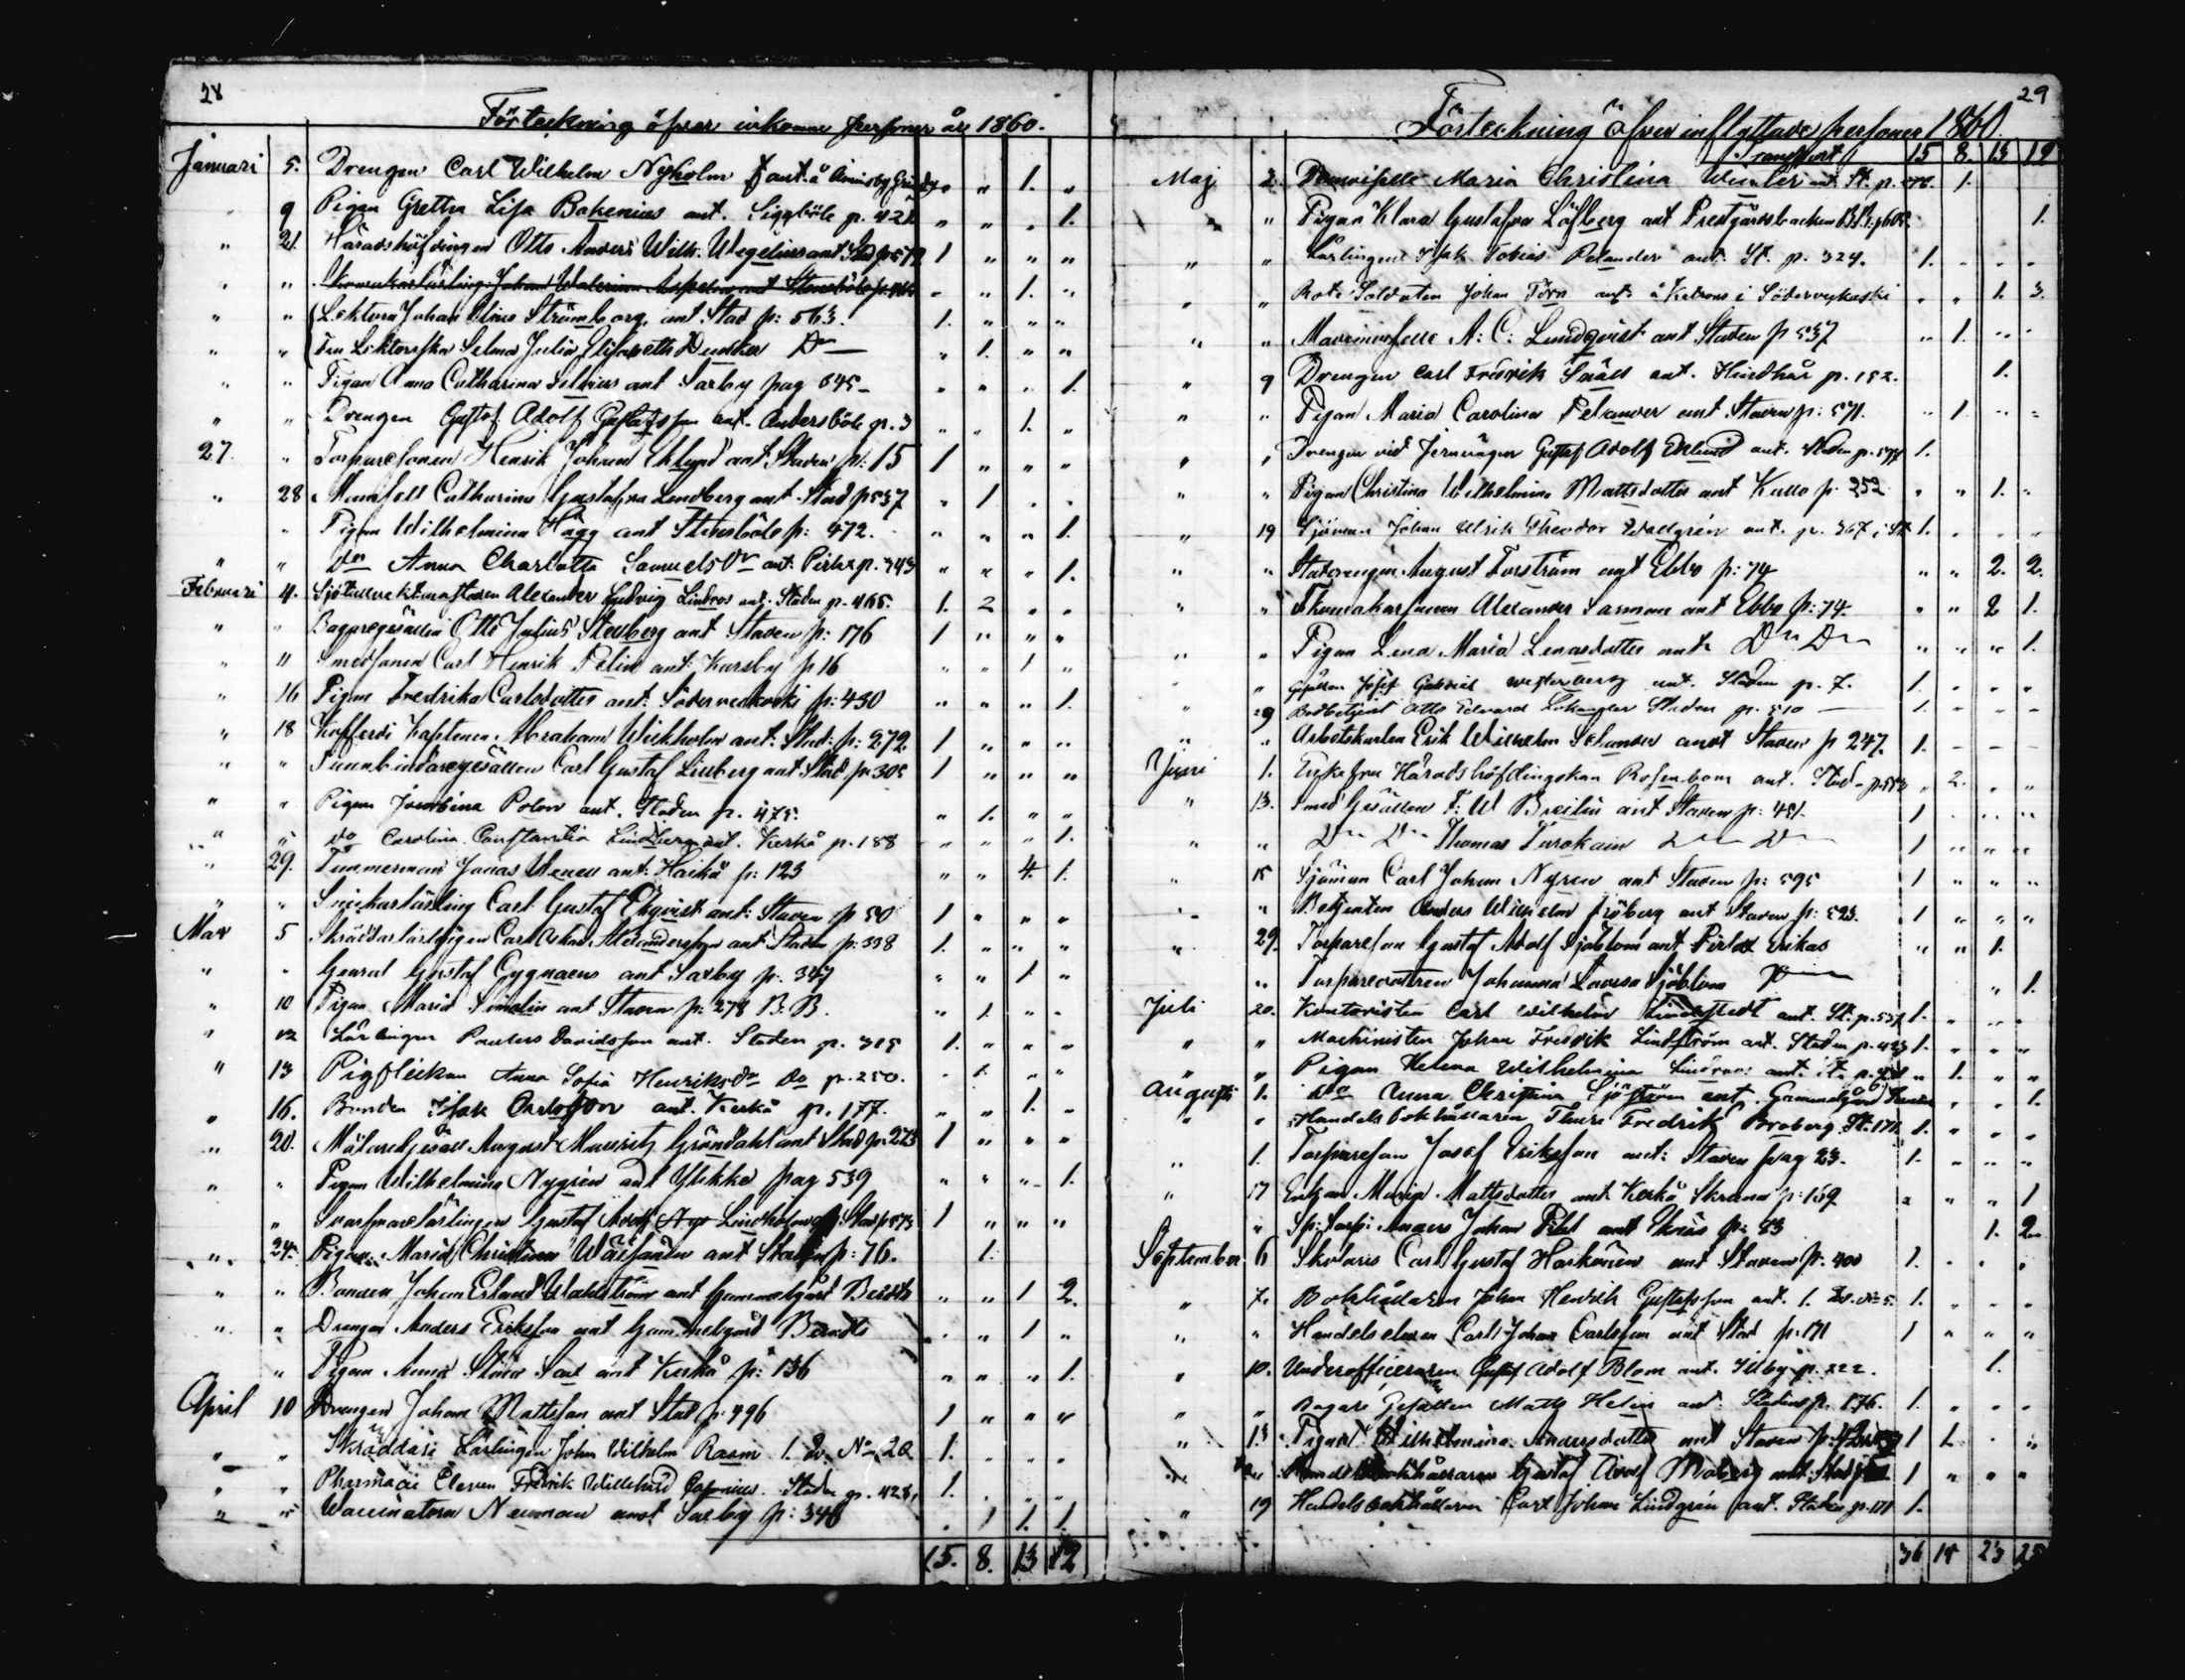 28
Förteckning öfver inkomne personer år 1860.
Januari 5. Drengen Carl Wilhelm Nyholm ant. å " " 1. "
9 Pigan Gretha Lisa Bokenius ant. Siggböle p. 421. " " " 1.
" 21. Häradshöfdingen Otto Anders Wilh. Wegelius ant Stad p 579 1 " " "
" " Johan ant Stensböle " " 1. "
" " Lektorn Johan Strömborg, ant. Stad p: 563. 1. " " "
" " Fru Lektorskan Selma Julia Elisabeth D:o " 1. " "
" " Pigan Anna Catharina Selenius ant Saxby pag 345 " " " 1.
" " Drengen Gustaf Adolf Gustafsson ant. Andersböle p. 3 " " 1. "
27. " Torparesonen Henrik Johan Eklund ant Staden p: 15 1 " " "
" 28 Mamsell Catharina Gustafva Lindberg ant. Stad p 537 " 1 " "
" Pigan Wilhelmina Hägg ant Stensböle p: 472. " " " 1.
" " D:o Anna Charlotta Samuelsdr ant: Pirlax p. 343 " " " 1.
Februari 4. Alexander Ludvig Lindros ant. Staden p. 466. 1. 2 " "
" " Bagaregesällen Otto Julius Stenberg ant Staden p: 176 1 " " "
" 11 Smedsonen Carl Henrik Felin ant: Karsby p 16 " " 1 "
" 16 Pigan Fredrika Carlsdotter ant: Söderveckoski p: 430 " " " 1.
" 18 Kofferdi Kaptenen Abraham Wickholm ant: Stad: p: 272. 1 " " "
" " Tunnbindaregesällen Carl Gustaf Linberg ant Stad p: 305 1 " " "
" " Pigan Josefina Polon ant. Staden p. 475. " 1. " "
" " do Carolina Constantia Lindberg ant. Kerkå p. 188 " " " 1.
" 29. Timmerman Jonas Wenell ant: Haikå p: 123 " " 4. 1.
" " Snickarlärling Carl Gustaf Öhqvist ant: Staden p 50 1 " " "
Mar 5 Skräddarlärlingen Carl Oskar Alexandersson ant Staden p: 338 1. " " "
" " Gustaf Cygnaeus ant Saxby p: 347 " " 1 "
" 10 Pigan Maria Simolin ant Staden p: 278 B.B. " 1. " "
" 12 Lärlingen Paulus Davidsson ant. Staden p. 315 1. " " "
" 13 Pigflickan Anna Sofia Henriksdr do p. 250. " 1. " "
" 16. Bonden Isak Carlsson ant. Kerkå p. 177. " " 1. "
" 20. Målaregesäll August Mauritz Gröndahl ant Stad p: 273 1 " " "
" " Pigan Wilhelmina Nygrén ant Ylikke pag 539 " " " 1.
" Svarfvarelärlingen Gustaf Adolf Lindholm Stad p 573 1 " " "
" 24. Pigan Maria Christina Wäisänen ant Staden p: 76. 1.
" " Bonden Johan Erland Wahlström ant Gammelgård " " 1 2.
" " Drengen Anders Eriksson ant Gammelgård " " 1 "
" Pigan Anna Stina Sax ant Kerkå p: 136 " " " 1.
April 10 Drengen Johan Mattsson ant Stad p: 496 1 " " "
" " Skräddare Lärlingen John Wilhelm Rasin 1. Qv. No 20 1. " " "
" " Pharmacie Eleven Fredrik Willehard Staden p. 428, 1. " " "
" " Vaccinatorn Neuman ant Saxby p: 346 . 1 1. 1.
15. 8. 13 12
29
Förteckning Öfver inflyttade personer 1860.
Transport 15 8. 13 12
Maj 2. Demoiselle Maria Christina Winter ant St. p. 1.
" Pigan Klara Gustafva Löfberg ant Prestgårdsbacken 1.
" " Lärlingen Isak Tobias Pelander ant. St. p. 324. 1. " " "
" " Rote Soldaten Johan Törn ant: å i " " 1. 3.
" " A: C: Lundqvist ant Staden p 537 " 1. " "
" 9 Drengen Carl Fredrik Snäll ant. Hindhår p. 152. 1.
" " Pigan Maria Carolina Pelander ant Staden p: 571. " 1. " "
" " Drengen vid Jernvägen Gustaf Adolf Eklund ant. Staden p. 1.
" " Pigan Christina Wilhelmina Mattsdotter ant Kullo p. 252 " " 1. "
" 19 Sjöman Johan Ulrik Theodor Wallgrén ant. p. 367 i St. 1. " " "
" " Statdrengen August Forström ant Ebbo p: 74 " " 2. 2.
" " Alexander Sarman ant Ebbo p: 74. " " 2 1.
" " Pigan Lena Maria Lenasdotter ant D:o D:o " " " 1.
" Gesällen Josef Gabriel Westerberg ant. Staden p. 7. 1. " " "
" 29 Otto Edvard Staden p. 510 1. " " "
" " Arbetskarlen Erik Wilhelm Selander ant Staden p 247. 1. " " "
Juni 1. Enkefru Häradshöfdingskan Rosenbom ant. Stad p. " 2. " "
" 13. Smed Gesällen F: W Breilin ant Staden p: 481. 1 " " "
" " D:o D:o Thomas D:o D:o 1 " " "
" 15 Sjöman Carl Johan Nyren ant Staden p: 595 1 " " "
" " Betjenten Anders Wilhelm Fröberg ant Staden p: 1 " " "
" 29. Torpareson Gustaf Adolf Sjöblom ant Pirlax Erikas " " 1.
" Torparedottren Johanna Lovisa Sjöblom D:o " 1.
Juli 20. Kontoristen Carl Wilhelm Lindstedt ant. St. p. 537 1. " " "
" " Machinisten Johan Fredrik Lindström ant. Staden p. 423 1. " " "
" Pigan Helena Wilhelmina Lindroos ant. St. " 1. " "
Augusti 1. D:o Anna Christina Sjöström ant. Gammelgård " " 1.
" " Handels bokhållaren Thure Fredrik Broberg St. 171. 1. " " "
" 1. Torpareson Josef Eriksson ant: Staden pag 23. 1. " " "
" 17 Enkan Maria Mattsdotter ant Kerkå Skräna p: 159 " " " 1
" Anders Johan Pihl ant p: 53 1. 2.
September 6 Carl Gustaf Harkonen ant Staden p: 400 1. " " "
" 7. Bokhållaren Johan Henrik Gustafsson ant. 1. Qv. No 5. 1. " " "
" " Handelseleven Carl Johan Carlsson ant Stad p: 171 1 " " "
" 10. Underofficeraren Gustaf Adolf Blom ant. Illby p. 222. 1.
" " Bagare Gesällen Matts Helin ant. Staden p. 176. 1. " " "
" 13 Pigan Wilhelmina Andersdotter ant Staden 1 1. " "
" " bokhållaren Gustaf Adolf Moberg ant: Stad 1 " " "
" 19 Handels bokhållaren Carl Johan Lindgrén ant. Staden p. 171 1.
36 15 23 25